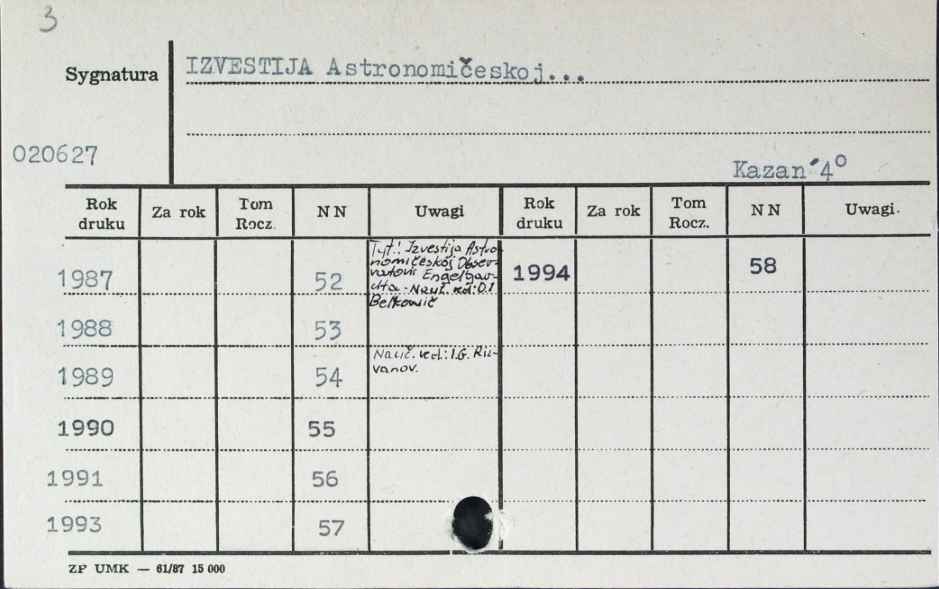 3
Sygnatura
IZVESTIJA Astronomičeskoj...
020627
Kazan´4º
Rok druku
Za rok
Tom Rocz.
NN
Uwagi
Rok druku
Za rok
Tom Rocz.
NN
Uwagi.
1987 52
Tyt.: Izvestija Astro-
nomičeskoj Obser-
vatorii Engelgar-
dta - Nauč. red: O.I
Belkovič
1994 58
1988 53
1989 54
Nauč. red.: I.G. Riz-
vanov.
1990 55
1991 56
1993 57
ZP UMK — 61/87 15 000